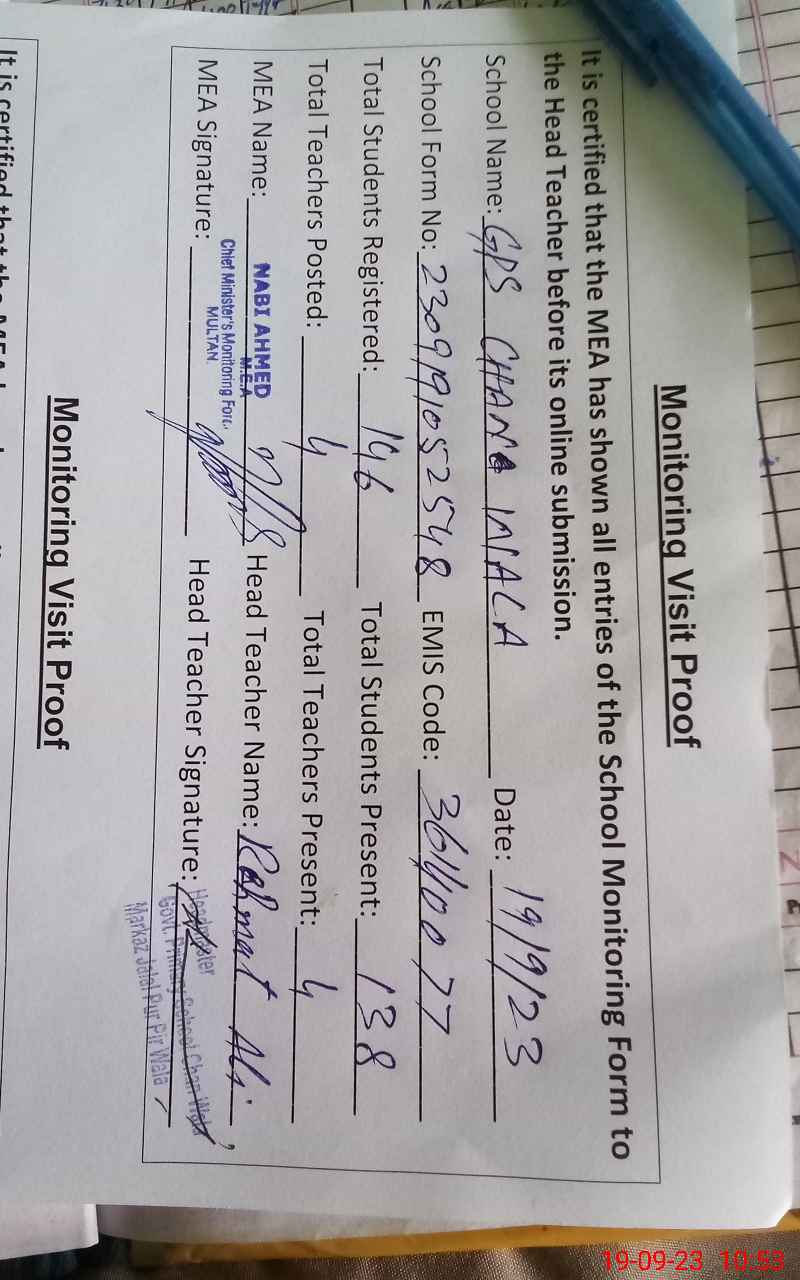 Monitoring Visit Proof
It is certified that the MEA has shown all entries of the School Monitoring Form to
the Head Teacher before its online submission.
School Name: GPS CHANA WALA Date: 19/9/23
School Form No: 2309191052548 EMIS Code: 36440077
Total Students Registered: 146 Total Students Present: 138
Total Teachers Posted: 4 Total Teachers Present: 4
MEA Name: NABI AHMED Head Teacher Name: Rahmat Ali
M.E.A
Chief Minister's Monitoring Forc.
MULTAN.
MEA Signature: Head Teacher Signature:
Headmaster
Govt. Primary School Chan Wala
Markaz Jalal Pur Pir Wala
Monitoring Visit Proof
It is certified that the MEA
19-09-23 10:53